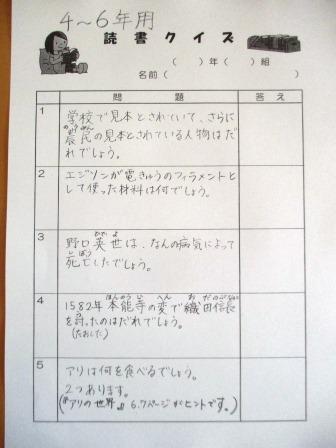 4～6年用
読書クイズ
(　)年(　)組
名前(　　　)
問題　答え
1
学校で見本とされていて、さらに
のうみん
農民の見本とされている人物はだ
れでしょう。
2
エジソンが電きゅうのフィラメントと
して使った材料は何でしょう。
3
ひでよ
野口英世は、なんの病気によって
しぼう
死亡したでしょう。
4
ほんのうじ へん おだのぶなが
1582年本能寺の変で織田信長
を討ったのはだれでしょう。
(たおした)
5
アリは何を食べるでしょう。
2つあります。
(『アリの世界』6.7ページがヒントです。)